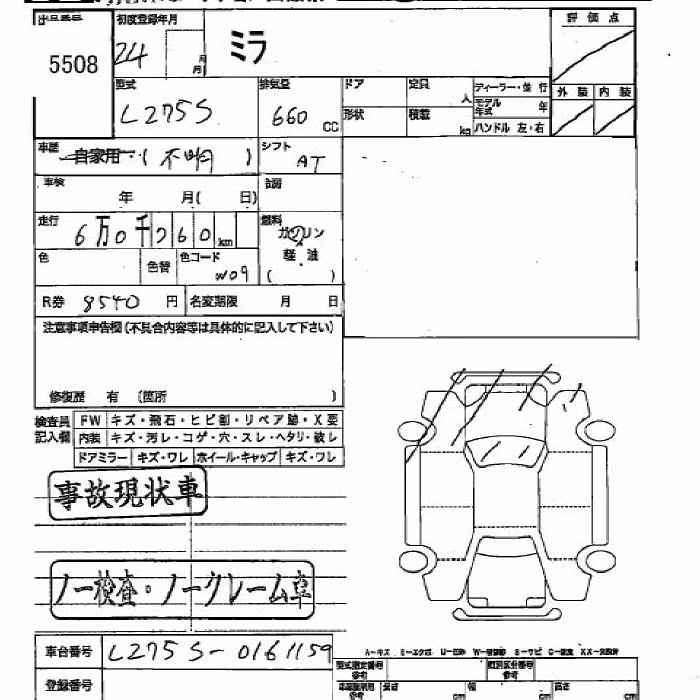 出品番号 初度登録年月 評価点
5508 24 年 月 ミラ
型式 排気量 ドア 定員 人 ディーラー・並行 外装 内装
L275S 660 CC 形状 積載 kg モデル年式 年
ハンドル 左・右
車歴 自家用・(不明) シフト AT
車検 年 月( 日) 合図
走行 6万0千260km 燃料 ガソリン
軽油
( )
色 色替 色コード W09
R券 8540 円 名変期限 月 日
注意事項申告欄(不具合内容等は具体的に記入して下さい)
修復歴 有 (箇所 )
検査員記入欄 FW キズ・飛石・ヒビ割・リペア跡・X要
内装 キズ・汚レ・コゲ・穴・スレ・ヘタリ・破レ
ドアミラー キズ・ワレ ホイール・キャップ キズ・ワレ
事故現状車
ノー検査・ノークレーム車
車台番号 L275S-0161159
登録番号
型式指定番号 参考 類別区分番号 参考
長さ cm 幅 cm 高さ cm